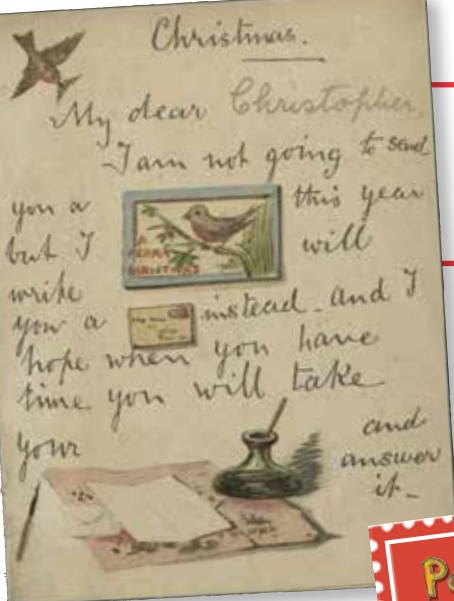 Christmas.
My dear Christopher,
I am not going to send
you a this year
A
MERRY
CHRISTMAS
but I will
write
you a instead. And I
hope when you have
time you will take
your and
answer
it_